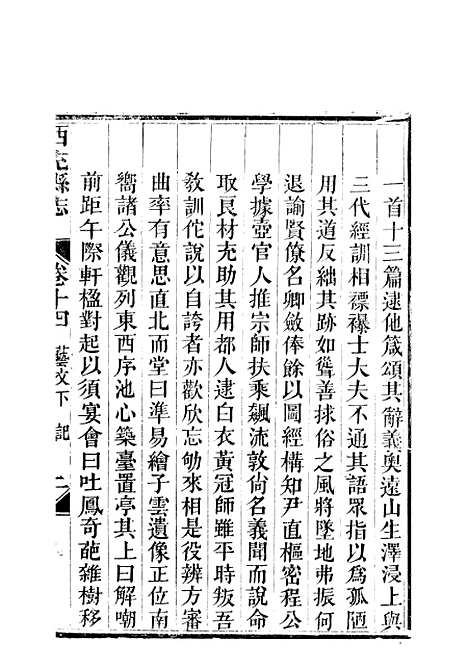 一首十三篇逮他箴頌其辭義奧遠山生澤浸上與
三代經訓相褾襮士大夫不通其語眾指以爲孤陋
用其道反絀其跡如聾善捄俗之風將墜地弗振何
退諭賢僚名卿斂俸餘以圖經構知尹直樞密程公
學據壺官人推宗師扶乘飆流敦尙名義聞而說命
取良材充助其用都人逮白衣黃冠師雖平時叛吾
敎訓佗說以自誇者亦歡欣忘劬來相是役辨方審
曲率有意思直北而堂曰準易繪子雲遺像正位南
嚮諸公儀觀列東西序池心築臺置亭其上曰解嘲
前距午際軒楹對起以須宴會曰吐鳳奇葩雜樹移
西充縣志 卷十四 藝文下 記